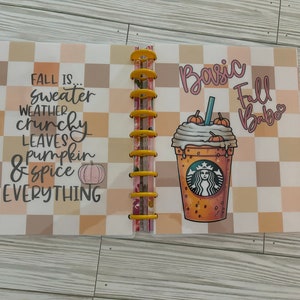 FALL IS...
Sweater
WEATHER
crunchy
LEAVES
pumpkin
& spice
EVERYTHING
Basic
Fall
Babe